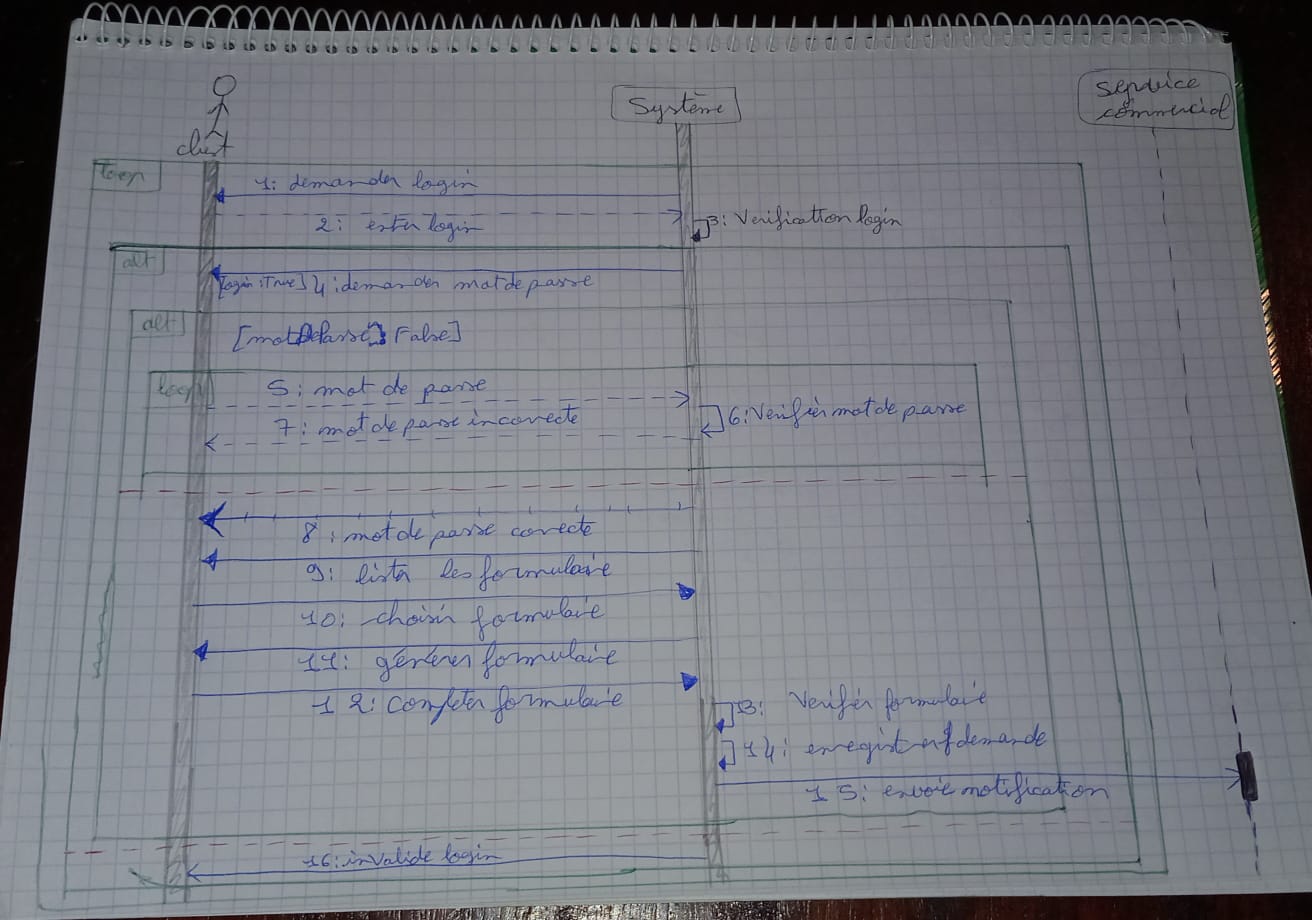 client
Système
Service
commercial
loop
1: demander login
2: entrer login
3: Verification login
alt
[login:True] 4: demander mot de passe
alt
[motDePasse: False]
loop
5: mot de passe
6: Verifier mot de passe
7: mot de passe incorrecte
8: mot de passe correcte
9: lister les formulaire
10: choisir formulaire
11: générer formulaire
12: completer formulaire
13: Verifier formulaire
14: enregistrer demande
15: envoie notification
16: invalide login